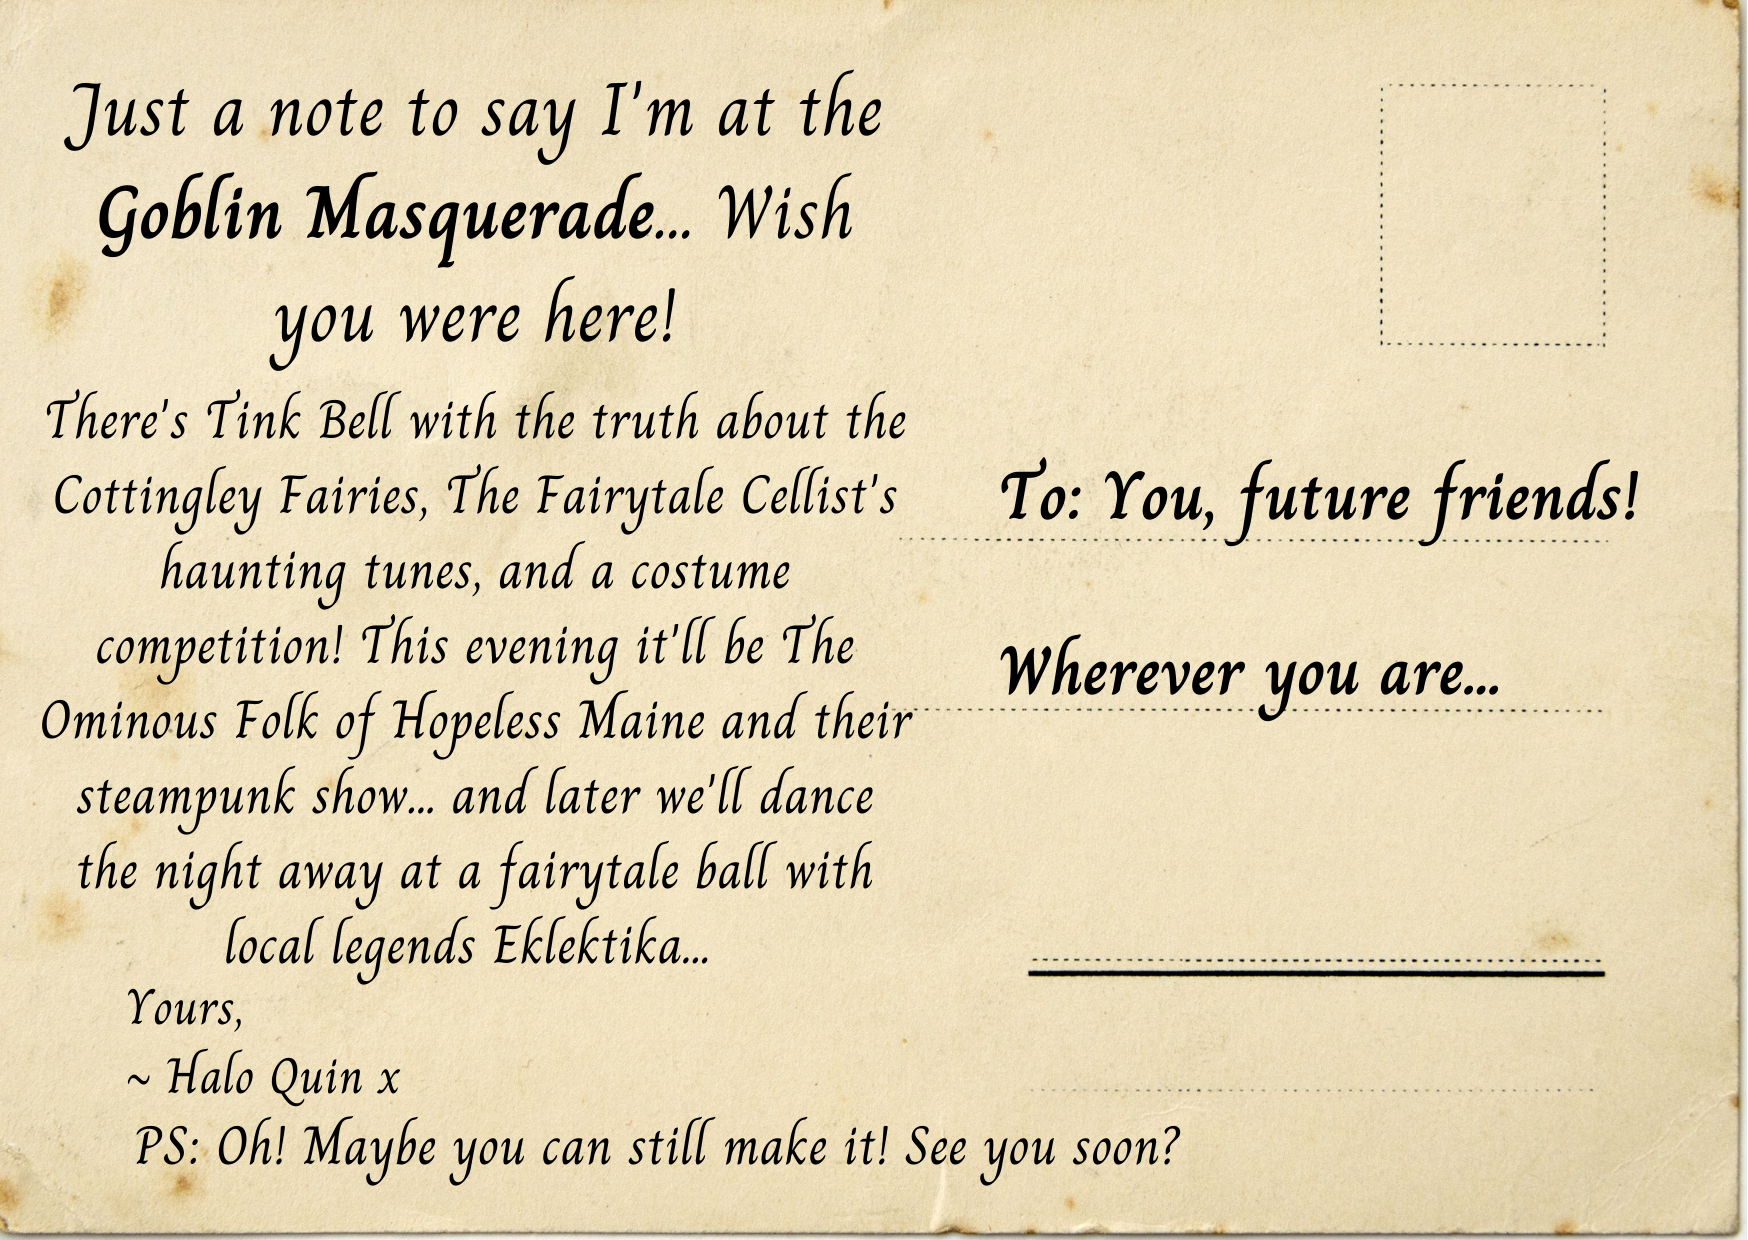 Just a note to say I'm at the
Goblin Masquerade... Wish
you were here!
There's Tink Bell with the truth about the
Cottingley Fairies, The Fairytale Cellist's
haunting tunes, and a costume
competition! This evening it'll be The
Ominous Folk of Hopeless Maine and their
steampunk show... and later we'll dance
the night away at a fairytale ball with
local legends Eklektika...
Yours,
~ Halo Quin x
PS: Oh! Maybe you can still make it! See you soon?
To: You, future friends!
Wherever you are...